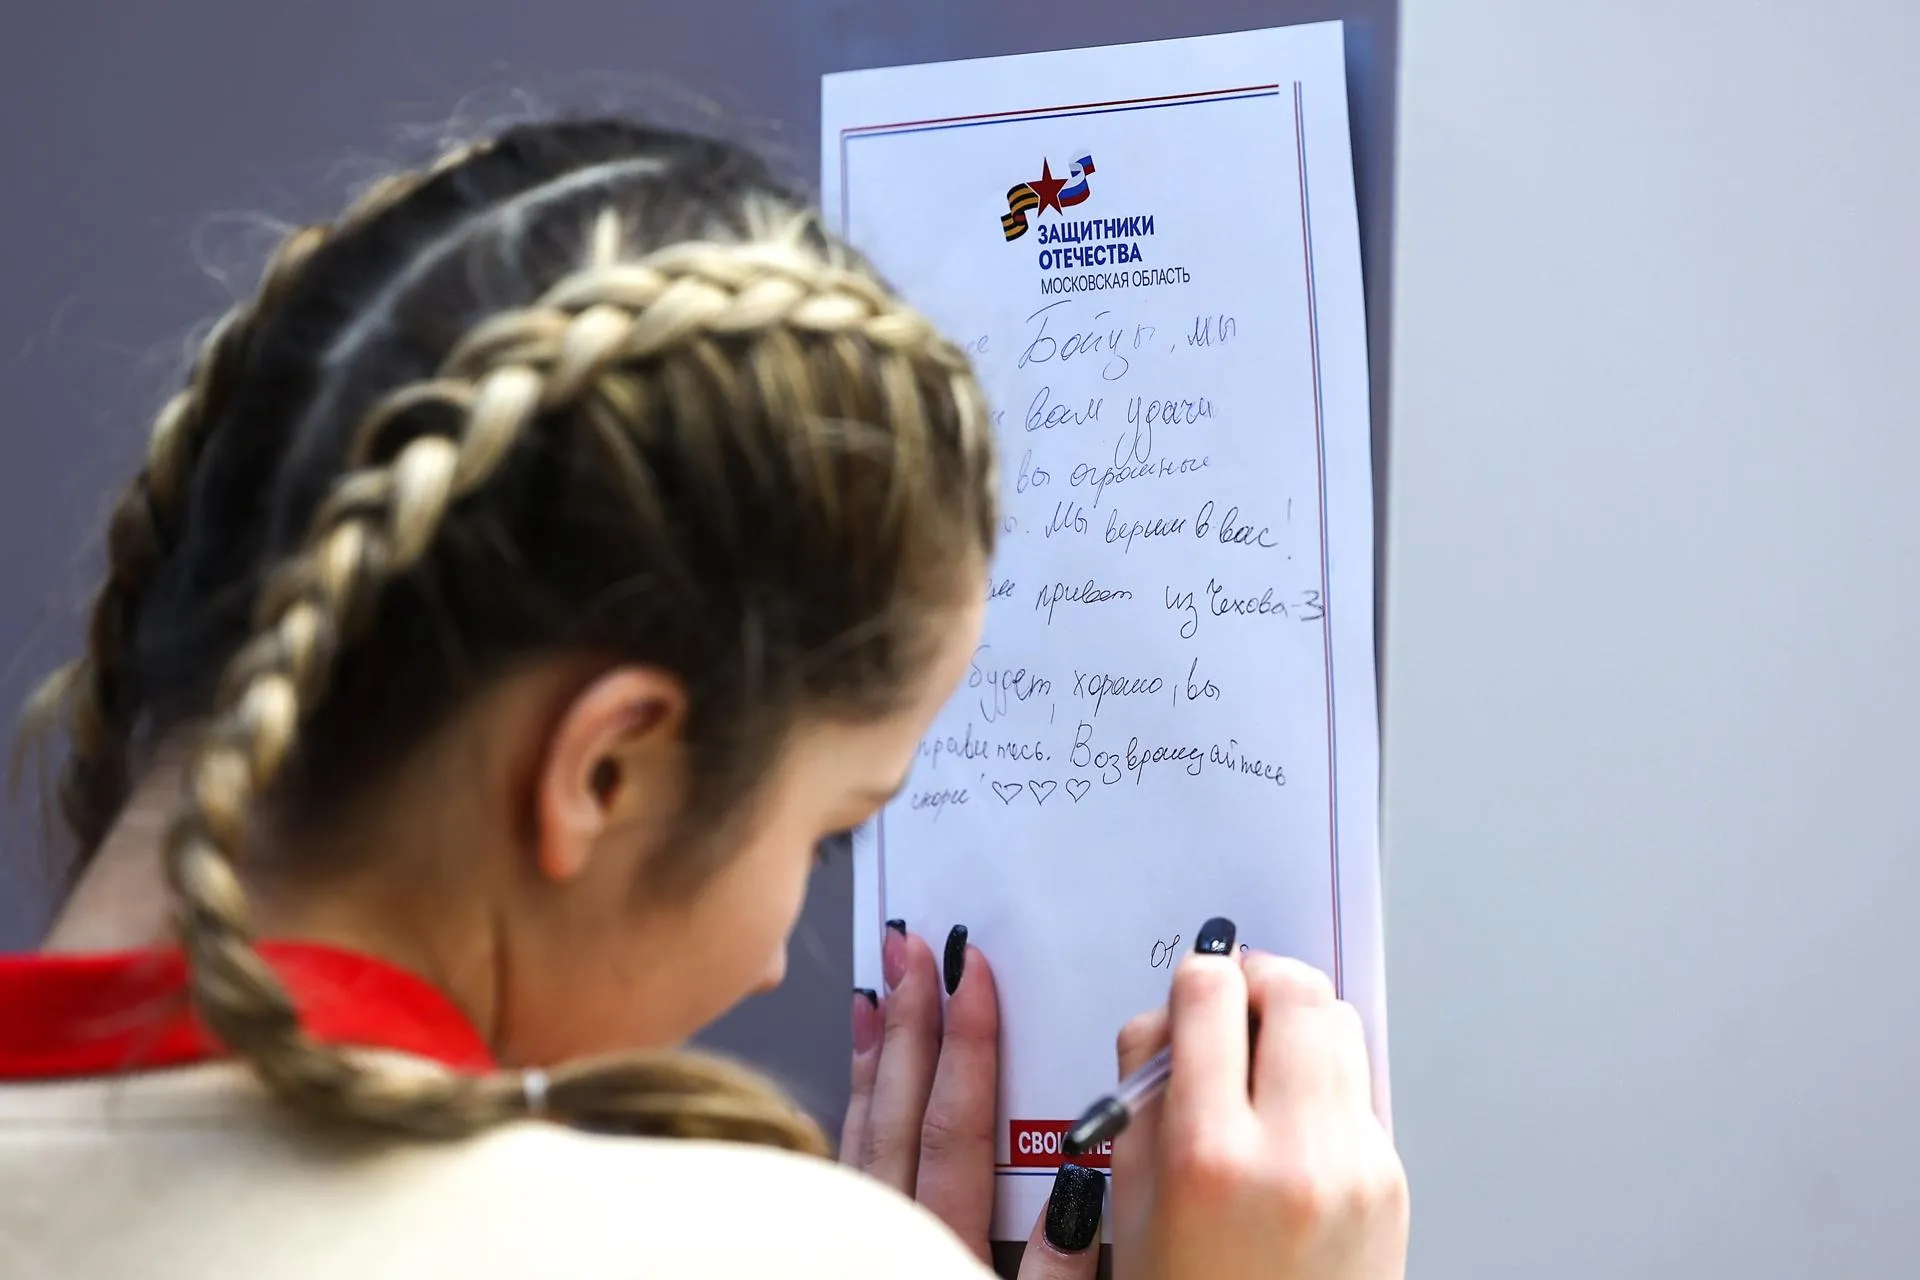 ЗАЩИТНИКИ
ОТЕЧЕСТВА
МОСКОВСКАЯ ОБЛАСТЬ
Бойцы, мы
вам удачи
вы огромные
Мы верим в вас!
привет из Чехова-3
будет хорошо, вы
Возвращайтесь
скорее! ♡♡♡
01